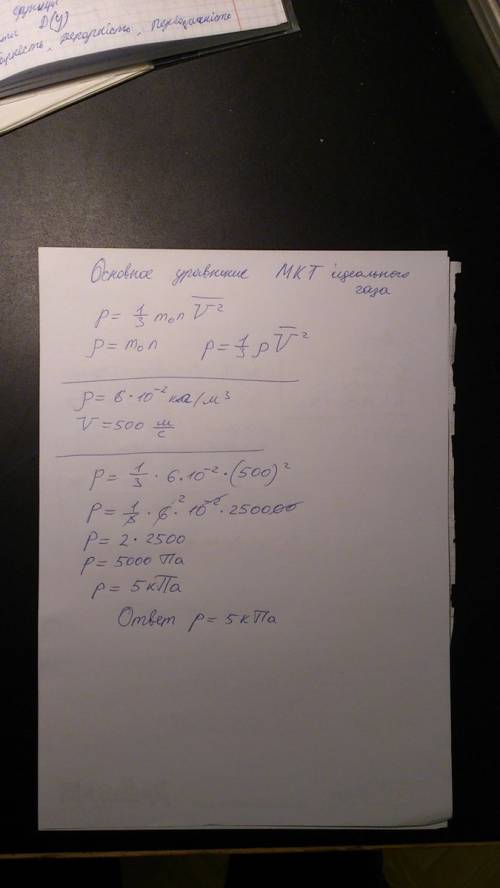 функции
D(y)
парність, періодичність
Основное уравнение МКТ идеального
газа
p = 1/3 m₀n V̅²
ρ = m₀n p = 1/3 ρ V̅²
ρ = 6·10⁻² кг/м³
V = 500 м/с
p = 1/3 · 6·10⁻² · (500)²
p = 1/3 · 6² · 10⁻² · 250000
p = 2 · 2500
p = 5000 Па
p = 5 кПа
Ответ p = 5 кПа